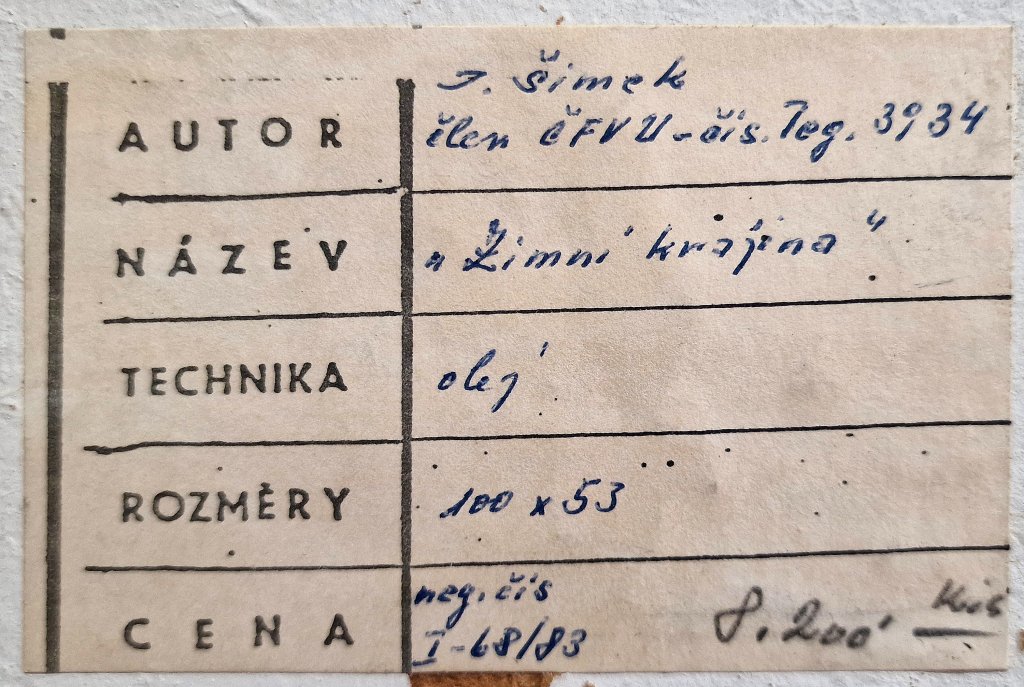 AUTOR J. Šimek
člen ČFVU-čís. Teg. 3934
NÁZEV „Zimní krajina"
TECHNIKA olej
ROZMĚRY 100 x 53
CENA neg. čís
I-68/83 8.200